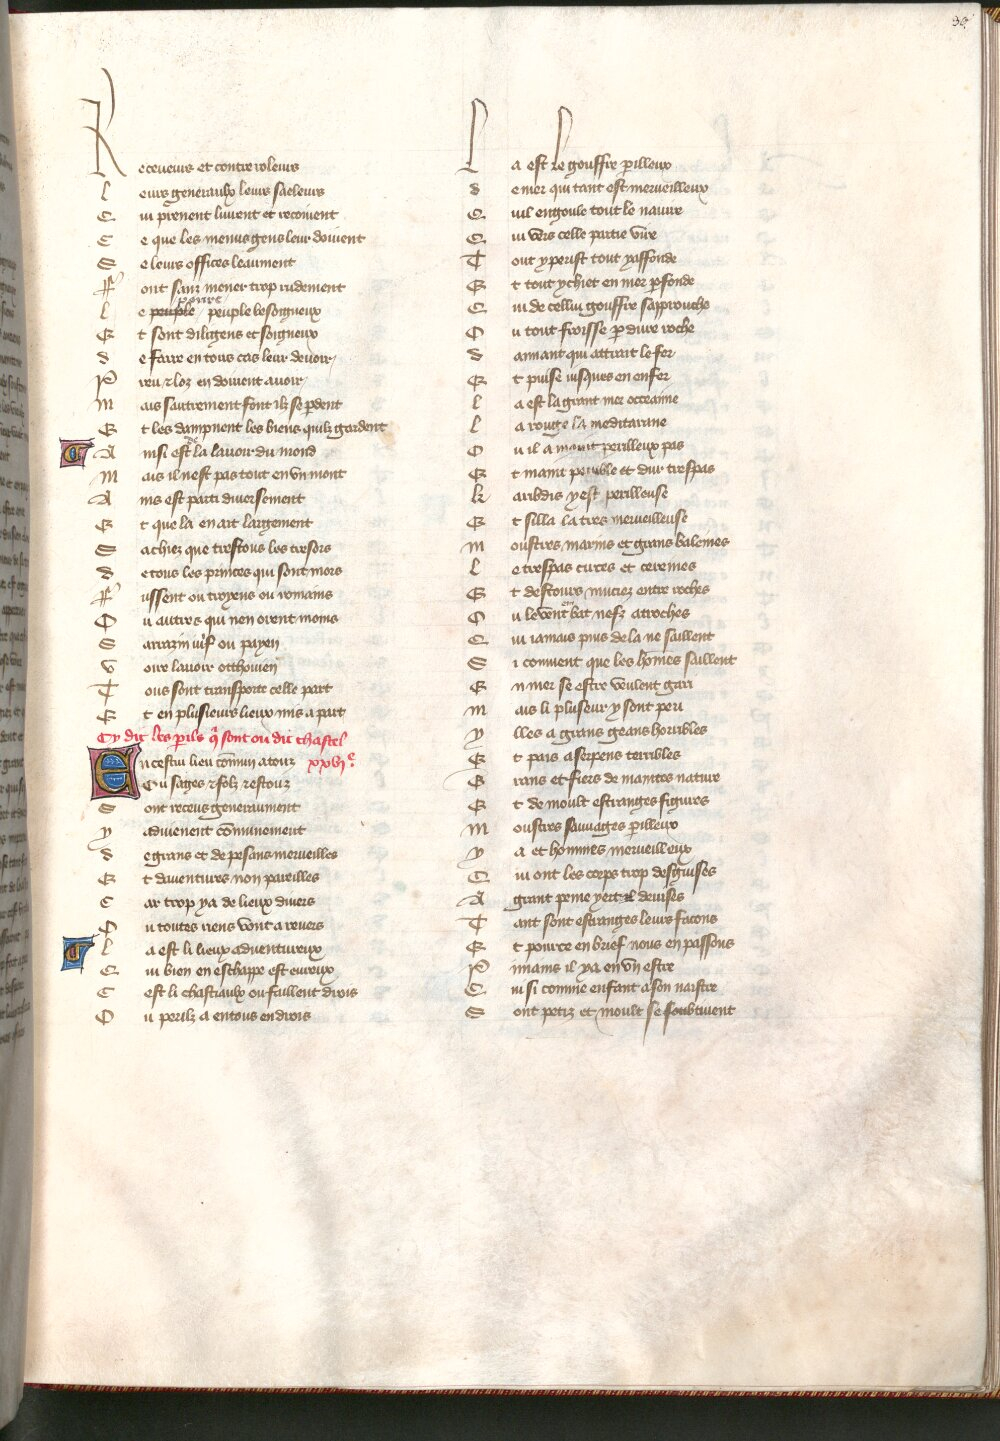 36
Receveurs et contreroleurs
Leurs generaulx leurs saeleurs
Qui prenent livrent et recoivent
Ce que les menus gens leur doivent
Se leurs offices leaument
Font sanz mener trop rudement
povre
Le peuple peuple besoigneux
Et sont diligens et soigneux
De faire en tous cas leur devoir
Preu et loz en doivent avoir
Mais s'autrement font ilz se perdent
Et les dampnent les biens quilz gardent
de
Ainsi est la lavoir du mond
Mais il nest pas tout en un mont
Ains est parti diversement
Et que la en art largement
Sachiez que trestous les tresors
De tous les princes qui sont mors
Fussent ou troyens ou romains
Ou autres qui nen orent moins
Sarrazin iuif ou payen
Voire lavoir otthovien
Tous sont transporte celle part
Et en plusieurs lieux mis a part
Cy dit les perils qi sont ou dit chastel
En cestui lieu commun atour xxvie.
Ou sages et folz restour
Sont receus generaument
Y advienent communement
De grans et de pesans merveilles
Et daventures non pareilles
Car trop y a de lieux divers
Ou toutes riens vont a revers
La est li lieux adventureux
Qui bien en eschappe est eureux
Cest li chastiaulx ou faillent drois
Ou perilz a en tous endrois
La est le gouffre perilleux
De mer qui tant est merveilleux
Quil engoule tout le navire
Qui vers celle partie vire
Tout y perist tout y affonde
Et tout ychiet en mer parfonde
Qui de cellui gouffre sapprouche
Ou tout froisse par dure roche
Daimant qui attrait le fer
Et puise iusques en enfer
La est la grant mer occeaine
La rouge la mediterane
Ou il a maint perilleux pas
Et maint penible et dur trespas
Karibdis y est perilleuse
Et silla la tres merveilleuse
Moustres marins et grans balemes
Le trespas circes et ceremes
Et destours muciez entre roches
en
Ou le vent bat nefz atroches
Qui iamais puis de la ne saillent
Si convient que les hommes faillent
En mer se estre veulent gari
Mais li pluseur y sont peri
Ylles a grans geans horribles
Et pais a serpens terribles
Grans et fiers de maintes nature
Et de moult estranges figures
Moustres sauvages perilleux
Y a et hommes merveilleux
Qui ont les corps trop desguises
A grant peine yert il devises
Tant sont estranges leurs facons
Et pource en brief nous en passons
Pimains il y a en un estre
Qui si comme enfant a son naistre
Sont petiz et moult se soubtivent